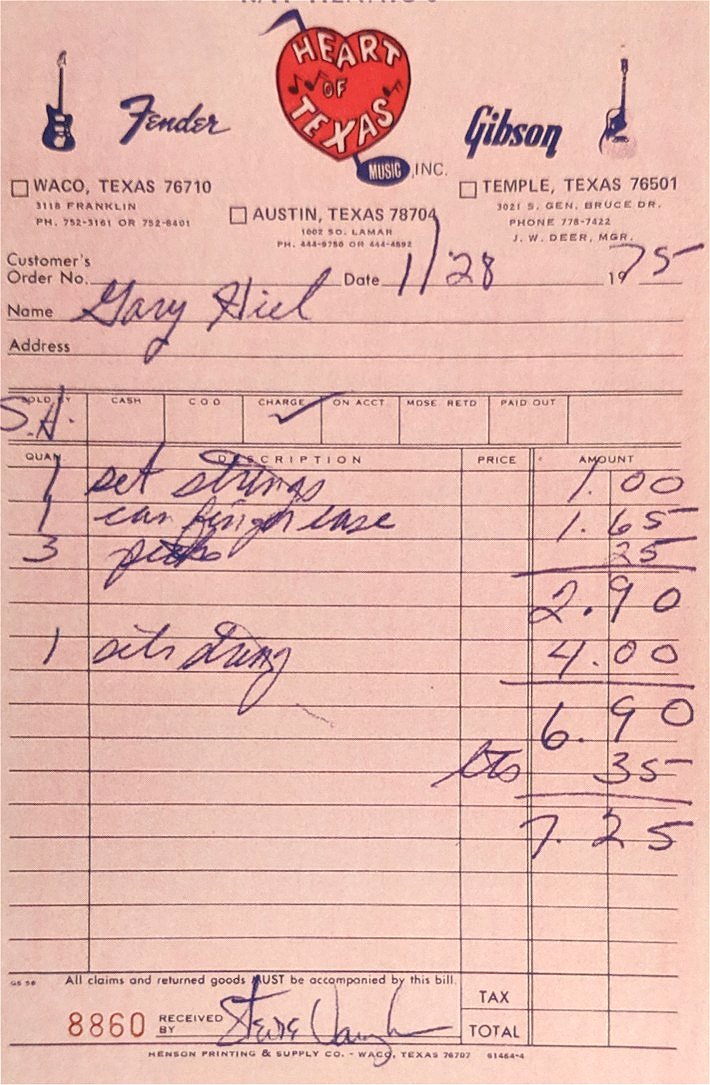 HEART
OF
TEXAS
MUSIC, INC.
Fender
Gibson
WACO, TEXAS 76710
3118 FRANKLIN
PH. 752-3161 OR 752-8401
AUSTIN, TEXAS 78704
1002 SO. LAMAR
PH. 444-9750 OR 444-4592
TEMPLE, TEXAS 76501
3021 S. GEN. BRUCE DR.
PHONE 778-7422
J. W. DEER, MGR.
Customer's
Order No. Date 1/28 1975
Name Gary Hiel
Address
SOLD BY CASH C O D CHARGE ON ACCT. MDSE. RETD. PAID OUT
S.H. ✓
QUAN. DESCRIPTION PRICE AMOUNT
1 set strings 1.00
1 can finger ease 1.65
3 picks 25
2.90
1 4.00
6.90
35
7.25
GS 58 All claims and returned goods MUST be accompanied by this bill.
8860 RECEIVED BY Steve Vaughn
TAX
TOTAL
HENSON PRINTING & SUPPLY CO. - WACO, TEXAS 76707 61464-4